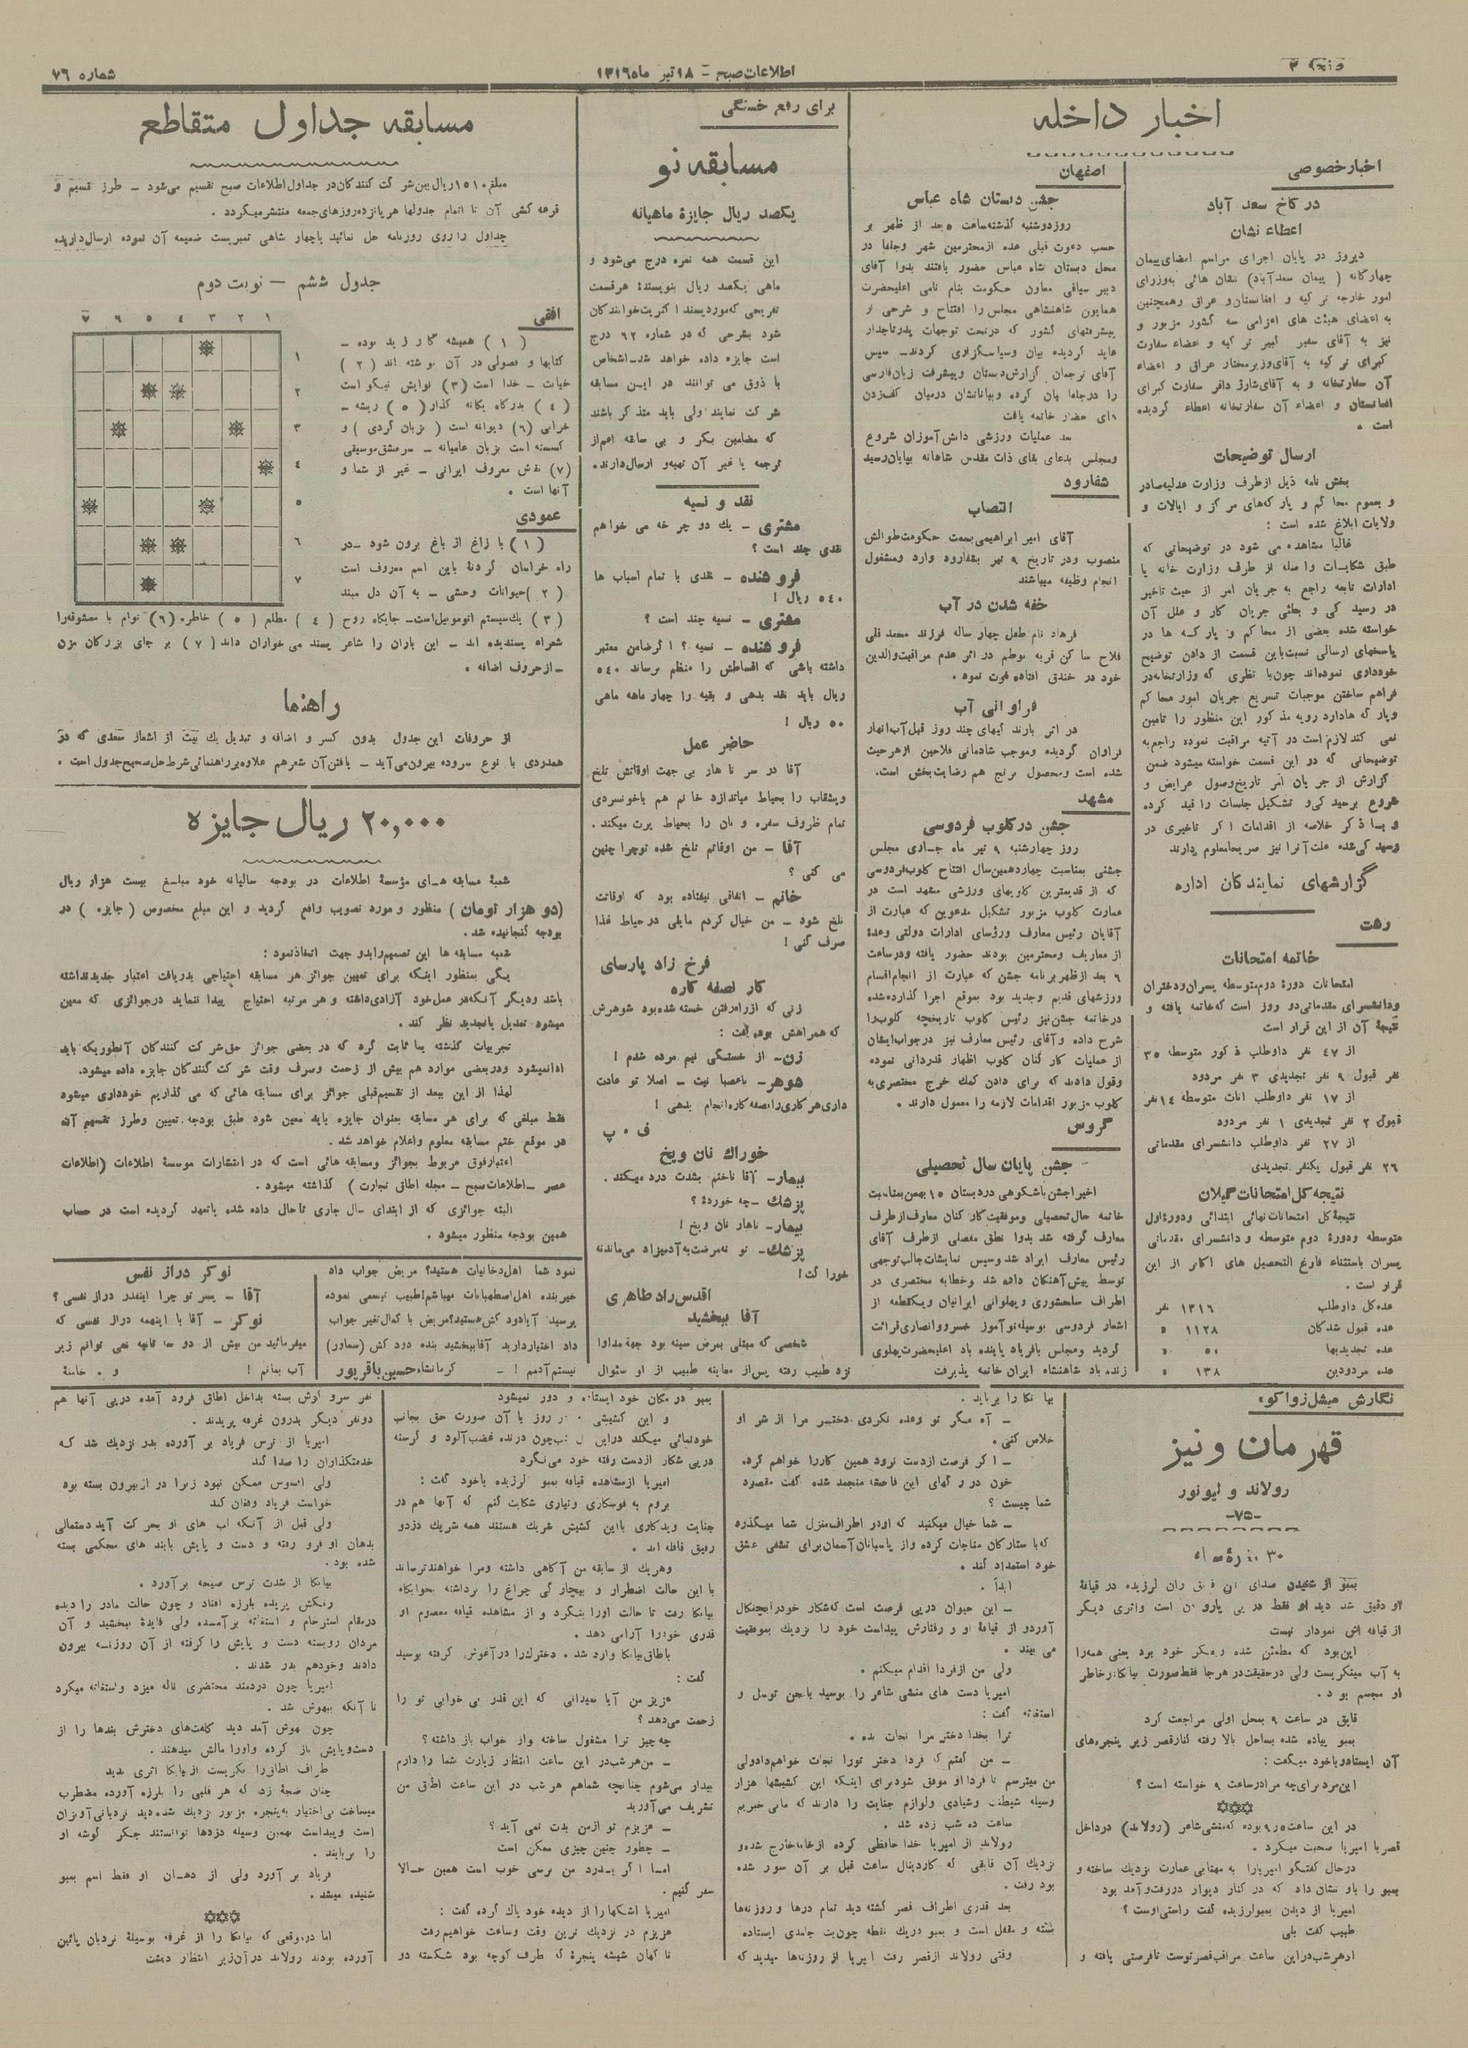 صفحه ۲
اطلاعات صبح – ۱۸ تیر ماه ۱۳۱۶
شماره ۷۶
اخبار داخله
اخبار خصوصی
در کاخ سعد آباد
اعطاء نشان
دیروز در پایان اجرای مراسم امضای پیمان
چهارگانه ( پیمان سعدآباد) نشان هائی به وزرای
امور خارجه ترکیه و افغانستان و عراق وهمچنین
به اعضای هیئت های اعزامی سه کشور مزبور و
نیز به آقای سفیر کبیر ترکیه و اعضاء سفارت
کبرای ترکیه به آقای وزیر مختار عراق و اعضاء
آن سفارتخانه و به آقای شارژ دافر سفارت کبرای
افغانستان و اعضاء آن سفارتخانه اعطاء گردیده
است .
ارسال توضیحات
بخش نامه ذیل از طرف وزارت عدلیه صادر
و بعموم محاکم و پارکه های مرکز و ایالات و
ولایات ابلاغ شده است :
غالبا مشاهده می شود در توضیحاتی که
طبق شکایات واصله از طرف وزارت خانه یا
ادارات تابعه راجع به جریان امر از حیث تاخیر
در رسیدگی و بطئی جریان کار و علل آن
خواسته شده بعضی از محاکم و پارکه ها در
پاسخهای ارسالی نسبت باین قسمت از دادن توضیح
خودداری نموده اند چون با نظری که وزارتخانه در
فراهم ساختن موجبات تسریع جریان امور محاکم
وپارکه هادارد رویه مذکور این منظور را تامین
نمی کند لازم است در آتیه مراقبت نموده راجع به
توضیحاتی که در این قسمت خواسته میشود ضمن
گزارش از جریان امر تاریخ وصول عرایض و
شروع برسیدگی و تشکیل جلسات را قید کرده
و با ذکر خلاصه از اقدامات اگر تاخیری در
رسیدگی شده علت آنرا نیز صریحا معلوم دارند
گزارشهای نمایندگان اداره
رشت
خاتمه امتحانات
امتحانات دورهٔ دوم متوسطه پسران ودختران
ودانشسرای مقدماتی دو روز است که خاتمه یافته و
نتیجهٔ آن از این قرار است
از ۴۷ نفر داوطلب ذکور متوسطه ۳۵
نفر قبول ۹ نفر تجدیدی ۳ نفر مردود
از ۱۷ نفر داوطلب اناث متوسطه ۱۴ نفر
قبول ۲ نفر تجدیدی ۱ نفر مردود
از ۲۷ نفر داوطلب دانشسرای مقدماتی
۲۶ نفر قبول یکنفر تجدیدی
نتیجه کل امتحانات گیلان
نتیجهٔ کل امتحانات نهائی ابتدائی ودورهٔ اول
متوسطه ودورهٔ دوم متوسطه و دانشسرای مقدماتی
پسران باستثناء فارغ التحصیل های اکابر از این
قرار است .
عده کل داوطلب ۱۳۱۶ نفر
عده قبول شدگان ۱۱۲۸ »
عده تجدیدیها ۵۱ »
عده مردودین ۱۳۸ »
اصفهان
جشن دبستان شاه عباس
روزدوشنبه گذشته ساعت ۵ بعد از ظهر بر
حسب دعوت قبلی عده از محترمین شهر وعلما در
محل دبستان شاه عباس حضور یافتند بدوا آقای
دبیر سیاقی معاون حکومت بنام نامی اعلیحضرت
همایون شاهنشاهی مجلس را افتتاح و شرحی از
پیشرفتهای کشور که در تحت توجهات پدر تاجدار
عاید گردیده بیان وسپاسگزاری کردند – سپس
آقای ترجمان گزارش دبستان وپیشرفت زبان فارسی
را درجلفا بیان کرده وبیاناتشان درمیان کف زدن
های حضار خاتمه یافت
بعد عملیات ورزشی دانش آموزان شروع
ومجلس بدعای بقای ذات مقدس شاهانه بپایان رسید
شفارود
انتصاب
آقای امیر ابراهیمی بسمت حکومت طوالش
منصوب ودر تاریخ ۹ تیر بشفارود وارد ومشغول
انجام وظیفه میباشند
خفه شدن در آب
فرهاد نام طفل چهار ساله فرزند محمد قلی
فلاح ساکن قریه بوطم در اثر عدم مراقبت والدین
خود در خندق افتاده فوت نمود .
فراوانی آب
در اثر بارندگیهای چند روز قبل آب انهار
فراوان گردیده وموجب شادمانی فلاحین از هر حیث
شده است ومحصول برنج هم رضایت بخش است.
مشهد
جشن در کلوب فردوسی
روز چهارشنبه ۹ تیر ماه جاری مجلس
جشنی بمناسبت چهاردهمین سال افتتاح کلوب فردوسی
که از قدیمترین کلوبهای ورزشی مشهد است در
عمارت کلوب مزبور تشکیل مدعوین که عبارت از
آقایان رئیس معارف ورؤسای ادارات دولتی وعدهٔ
از معاریف ومحترمین بودند حضور یافته ودرساعت
۶ بعد از ظهر برنامه جشن که عبارت از انجام اقسام
ورزشهای قدیم وجدید بود بموقع اجرا گذارده شده
درخاتمه جشن نیز رئیس کلوب تاریخچه کلوب را
شرح داده و آقای رئیس معارف نیز درجواب ایشان
از عملیات کارکنان کلوب اظهار قدردانی نموده
وقول دادند که برای دادن کمک خرج مختصری به
کلوب مزبور اقدامات لازمه را معمول دارند .
گروس
جشن پایان سال تحصیلی
اخیرا جشن باشکوهی در دبستان ۱۵ بهمن بمناسبت
خاتمه سال تحصیلی وموفقیت کارکنان معارف از طرف
معارف گرفته شد بدوا نطق مفصلی از طرف آقای
رئیس معارف ایراد شد وسپس نمایشات جالب توجهی
توسط پیش آهنگان داده شد وخطابه مختصری در
اطراف سلحشوری وپهلوانی ایرانیان ویکقطعه از
اشعار فردوسی بوسیله نوآموز خسرو انصاری قرائت
گردید ومجلس بافریاد پاینده باد اعلیحضرت پهلوی
زنده باد شاهنشاه ایران خاتمه پذیرفت
برای رفع خستگی
مسابقه نو
یکصد ریال جایزهٔ ماهیانه
این قسمت همه نمره درج می‌شود و
ماهی یکصد ریال بنویسندهٔ هر قسمت
تفریحی که مورد پسند اکثریت خوانندگان
شود بشرحی که در شماره ۶۲ درج
است جایزه داده خواهد شد – اشخاص
با ذوق می توانند در این مسابقه
شرکت نمایند ولی باید متذکر باشند
که مضامین بکر و بی سابقه اعم از
ترجمه یا غیر آن تهیه و ارسال دارند.
نقد و نسیه
مشتری – یک دو چرخه می خواهم
نقدی چند است ؟
فروشنده – نقدی با تمام اسباب ها
۵۴۰ ریال !
مشتری – نسیه چند است ؟
فروشنده – نسیه ؟ اگر ضامن معتبر
داشته باشی که اقساطش را منظم برساند ۵۴۰
ریال باید نقد بدهی و بقیه را چهار ماهه ماهی
۵۰ ریال !
حاضر عمل
آقا در سر ناهار بی جهت اوقاتش تلخ
وبشقاب را بحیاط میاندازد خانم هم باخونسردی
تمام ظروف سفره و نان را بحیاط پرت میکند.
آقا – من اوقاتم تلخ شده توچرا چنین
می کنی ؟
خانم – اتفاقی نیفتاده بود که اوقاتت
تلخ شود – من خیال کردم مایلی در حیاط غذا
صرف کنی !
فرخ زاد پارسای
کار نصفه کاره
زنی که از راه رفتن خسته شده بود شوهرش
که همراهش بود گفت :
زن – از خستگی نیم مرده شدم !
شوهر – باعصبا نیت – اصلا تو عادت
داری هر کاری را نصفه کاره انجام بدهی !
ف . پ
خوراک نان و یخ
بیمار – آقا ناخنم بشدت درد میکند.
پزشک – چه خوردهٔ ؟
بیمار – ناهار نان و یخ !
پزشک – تو نه مرضت به آدمیزاد می ماند نه
خوراکت !
اقدس راد طاهری
آقا ببخشید
شخصی که مبتلی بمرض سینه بود جهة مداوا
نزد طبیب رفته پس از معاینه طبیب از او سئوال
نمود شما اهل دخانیات هستید؟ مریض جواب داد
خیر بنده اهل اصطهبانات میباشم! طبیب تبسمی نموده
پرسید. آیادود کش هستید؟ مریض با کمال تغیر جواب
داد اختیار دارید آقا ببخشید بنده دود کش (سماور)
نیستم آدمم ! –
کرمانشاه حسین باقرپور
نوکر دراز نفس
آقا – پسر تو چرا اینقدر دراز نفسی ؟
نوکر – آقا با اینهمه دراز نفسی که
میفرمائید من بیش از دو سه ثانیه نمی توانم زیر
آب بمانم !
و . خامنهٔ
مسابقه جداول متقاطع
مبلغ ۱۵۱۰ ریال بین شرکت کنندگان در جداول اطلاعات صبح تقسیم می‌شود – طرز تقسیم و
قرعه کشی آن تا اتمام جدولها هر پانزده روزهای جمعه منتشر میگردد .
جداول را روی روزنامه حل نمائید باچهار شاهی تمبر پست ضمیمه آن نموده ارسال دارید
جدول ششم – نوبت دوم
۱ ۲ ۳ ۴ ۵ ۶ ۷
۱
۲
۳
۴
۵
۶
۷
افقی
( ۱ ) همیشه کار زید بوده –
کتابها و فصولی در آن نوشته اند ( ۲ )
خیانت – خدا است (۳) نوایش نیکو است
( ۴ ) بدرگاه یگانه گذار ( ۵ ) ریشه –
خرابی (۶) دیوانه است ( بزبان کردی ) و
گسسته است بزبان عامیانه – سرمشق موسیقی
(۷) نقش معروف ایرانی – غیر از شما و
آنها است .
عمودی
( ۱ ) با زاغ از باغ برون شود – در
راه خراسان گردنهٔ باین اسم معروف است
( ۲ ) حیوانات وحشی – به آن دل مبند
( ۳ ) یک سیستم اتوموبیل است – جایگاه روح ( ۴ ) مظلم ( ۵ ) خاطره (۶) توام با معشوقه را
شعراء پسندیده اند – این باران را شاعر پسند می خواران داند ( ۷ ) بر جای بزرگان مزن
– از حروف اضافه .
راهنما
از حروفات این جدول بدون کسر و اضافه و تبدیل یک بیت از اشعار سعدی که در
همدردی با نوع سروده بیرون می‌آید – یافتن آن شعر هم علاوه بر راهنمائی شرط حل صحیح جدول است .
۲۰,۰۰۰ ریال جایزه
شعبهٔ مسابقه های مؤسسهٔ اطلاعات در بودجه سالیانه خود مبلغ بیست هزار ریال
(دو هزار تومان) منظور و مورد تصویب واقع گردید و این مبلغ مخصوص ( جایزه ) در
بودجه گنجانیده شد.
شعبه مسابقه ها این تصمیم را بدو جهت اتخاذ نمود :
یکی بمنظور اینکه برای تعیین جوائز هر مسابقه احتیاجی بدریافت اعتبار جدید نداشته
باشد ودیگر آنکه در عمل خود آزادی داشته و هر مرتبه احتیاج پیدا ننماید در جوائزی که معین
میشود تعدیل یا تجدید نظر کند .
تجربیات گذشته بما ثابت کرد که در بعضی جوائز حق شرکت کنندگان آنطوریکه باید
ادا نمیشود ودر بعضی موارد هم بیش از زحمت وصرف وقت شرکت کنندگان جایزه داده میشود.
لهذا از این ببعد از تقسیم قبلی جوائز برای مسابقه هائی که می گذاریم خودداری میشود
فقط مبلغی که برای هر مسابقه بعنوان جایزه باید معین شود طبق بودجه تعیین وطرز تقسیم آن
در موقع ختم مسابقه معلوم واعلام خواهد شد .
اعتبار فوق مربوط بجوائز ومسابقه هائی است که در انتشارات موسسهٔ اطلاعات (اطلاعات
عصر – اطلاعات صبح – مجله اطاق تجارت ) گذاشته میشود .
البته جوائزی که از ابتدای سال جاری تا حال داده شده یا تعهد گردیده است در حساب
همین بودجه منظور میشود .
نگارش میشل زواکو
قهرمان ونیز
رولاند و لیونور
–۷۵–
بمبو از شنیدن صدای آن لرزیده در قیافهٔ
او دقیق شد دید او فقط در است واثری دیگر
از قیافه اش نمودار نیست
این بود که مطمئن شده در فکر خود بود یعنی همه را
به آب مینگریست ولی در حقیقت در هر جا فقط صورت بیانکا در خاطر
او مجسم بود .
قایق در ساعت ۹ بمحل اولی مراجعت کرد
بمبو پیاده شده بساحل بالا رفته کنار قصر زیر پنجره های
آن ایستاد و باخود میگفت :
این مرد برای چه مرا در ساعت ۹ خواسته است ؟
در این ساعت ۹ بود که منشی شاعر (رولاند) در داخل
قصر با امپریا صحبت میکرد .
درحال گفتگو امپریا را به مهتابی عمارت نزدیک ساخته و
بمبو را باو نشان داد که در کنار دیوار در رفت و آمد بود
امپریا از دیدن بمبو لرزیده گفت راستی اوست ؟
طبیب گفت بلی
او هر شب در این ساعت مراقب قصر توست تا فرصتی یافته و
بیانکا را برباید .
– آه مگر تو وعده نکردی دختر مرا از شر او
خلاص کنی .
– اگر فرصت از دست نرود همین کار را خواهم کرد.
خون در رگهای این فاحشه منجمد شده گفت مقصود
شما چیست ؟
– شما خیال میکنید که او در اطراف منزل شما میگذرد
که با ستارگان مناجات کرده و از پاسبانان آسمان برای تشفی عشق
خود استمداد کند .
ابداً .
– این حیوان در پی فرصت است که شکار خود را بچنگال
آورد و از قیافهٔ او و رفتارش پیداست خود را نزدیک بموفقیت
می بیند .
ولی من از فردا اقدام میکنم .
امپریا دست های منشی شاعر را بوسید با لحن توسل و
استغاثه گفت :
ترا بخدا دختر مرا نجات بده .
– من گفتم که فردا دختر تورا نجات خواهم داد ولی
من میترسم تا فردا او موفق شود برای اینکه این کشیشها هزار
وسیله شیطنت وشیادی ولوازم جنایت را دارند که ما بی خبریم
ساعت ده شب زده شد .
رولاند از امپریا خدا حافظی کرده از خانه خارج شده و
نزدیک آن قایقی که کاردینال ساعت قبل بر آن سوار شده
بود رفت .
بعد قدری اطراف قصر گشته دید تمام درها و روزنه ها
بسته و مقفل است و بمبو در یک نقطه چون بت جامدی ایستاده
وقتی رولاند از قصر رفت امپریا از روزنه ها میدید که
بمبو در مکان خود ایستاده و دور نمیشود
و این کشیش روز با آن صورت حق بجانب
خودنمائی میکند در این شب چون درنده غضب آلود و گرسنه
در پی شکار از دست رفته خود می‌گردد
امپریا از مشاهده قیافه بمبو لرزیده باخود گفت :
بروم به فوسکاری و شکایت کنم که آنها هم در
جنایت وبدکاری با این کشیش شریک هستند همه شریک دزد و
رفیق قافله اند .
وهریک از سابقه من آگاهی داشته ومرا خواهند ترساند
با این حالت اضطرار و بیچارگی چراغ را برداشته بخوابگاه
بیانکا رفت تا حالت اورا بنگرد و از مشاهده قیافه معصوم او
قدری خود را آرامی دهد .
باطاق بیانکا وارد شد . دخترک را در آغوش گرفته بوسید
گفت :
عزیز من آیا نمیدانی که این قدر بی خوابی تو را
زحمت می‌دهد ؟
چه چیز ترا مشغول ساخته و از خواب باز داشته ؟
– من هر شب در این ساعت انتظار زیارت شما را دارم
بیدار می شوم چنانچه شما هم هر شب در این ساعت اطاق من
تشریف می‌آورید
– عزیزم تو از من بدت نمی آید ؟
– چطور چنین چیزی ممکن است
اما اگر بپدرد من برسی خوب است همین حالا
سفر کنیم .
امپریا اشکها را از دیده خود پاک کرده گفت :
عزیزم در نزدیک ترین وقت وساعت خواهیم رفت
ناگهان شیشه پنجرهٔ که طرف کوچه بود شکسته دو
نفر سر و گوش بسته بداخل اطاق فرود آمده در پی آنها هم
دو نفر دیگر بدرون غرفه پریدند .
امپریا از ترس فریاد بر آورده بدر نزدیک شد که
خدمتگذاران را صدا کند
ولی افسوس ممکن نبود زیرا در از بیرون بسته بود
خواست فریاد وفغان کند
ولی قبل از آنکه لب های او بحرکت آید دستمالی
بدهان او فرو رفته و دست و پایش بابند های محکمی بسته
شده بود .
بیانکا از شدت ترس صیحه برآورد .
رنگش پریده بلرزه افتاد و چون حالت مادر را دیده
درمقام استرحام و استغاثه بر آمده ولی فایدهٔ نبخشید و آن
مردان رو بسته دست و پایش را گرفته از آن روزنه بیرون
دادند وخودهم بدر شدند .
امپریا چون دردمند محتضری ناله میزد واستغاثه میکرد
تا آنکه بیهوش شد .
چون بهوش آمد دید کلفت‌های دخترش بندها را از
دست وپایش باز کرده واورا مالش میدهند .
طراف اطاق را نگریست از بیانکا اثری ندید
چنان ضجهٔ زد که هر قلبی را بلرزه آورده مضطرب
میساخت بی اختیار به پنجره مزبور نزدیک شده دید نردبانی آویزان
است وپیداست بهمین وسیله دزدها توانستند جگر گوشه او
را بربایند .
فریاد بر آورد ولی از دهان او فقط اسم بمبو
شنیده میشد .
اما در موقعی که بیانکا را از غرفه بوسیلهٔ نردبان پائین
آورده بودند رولاند در آن زیر انتظار میکشت